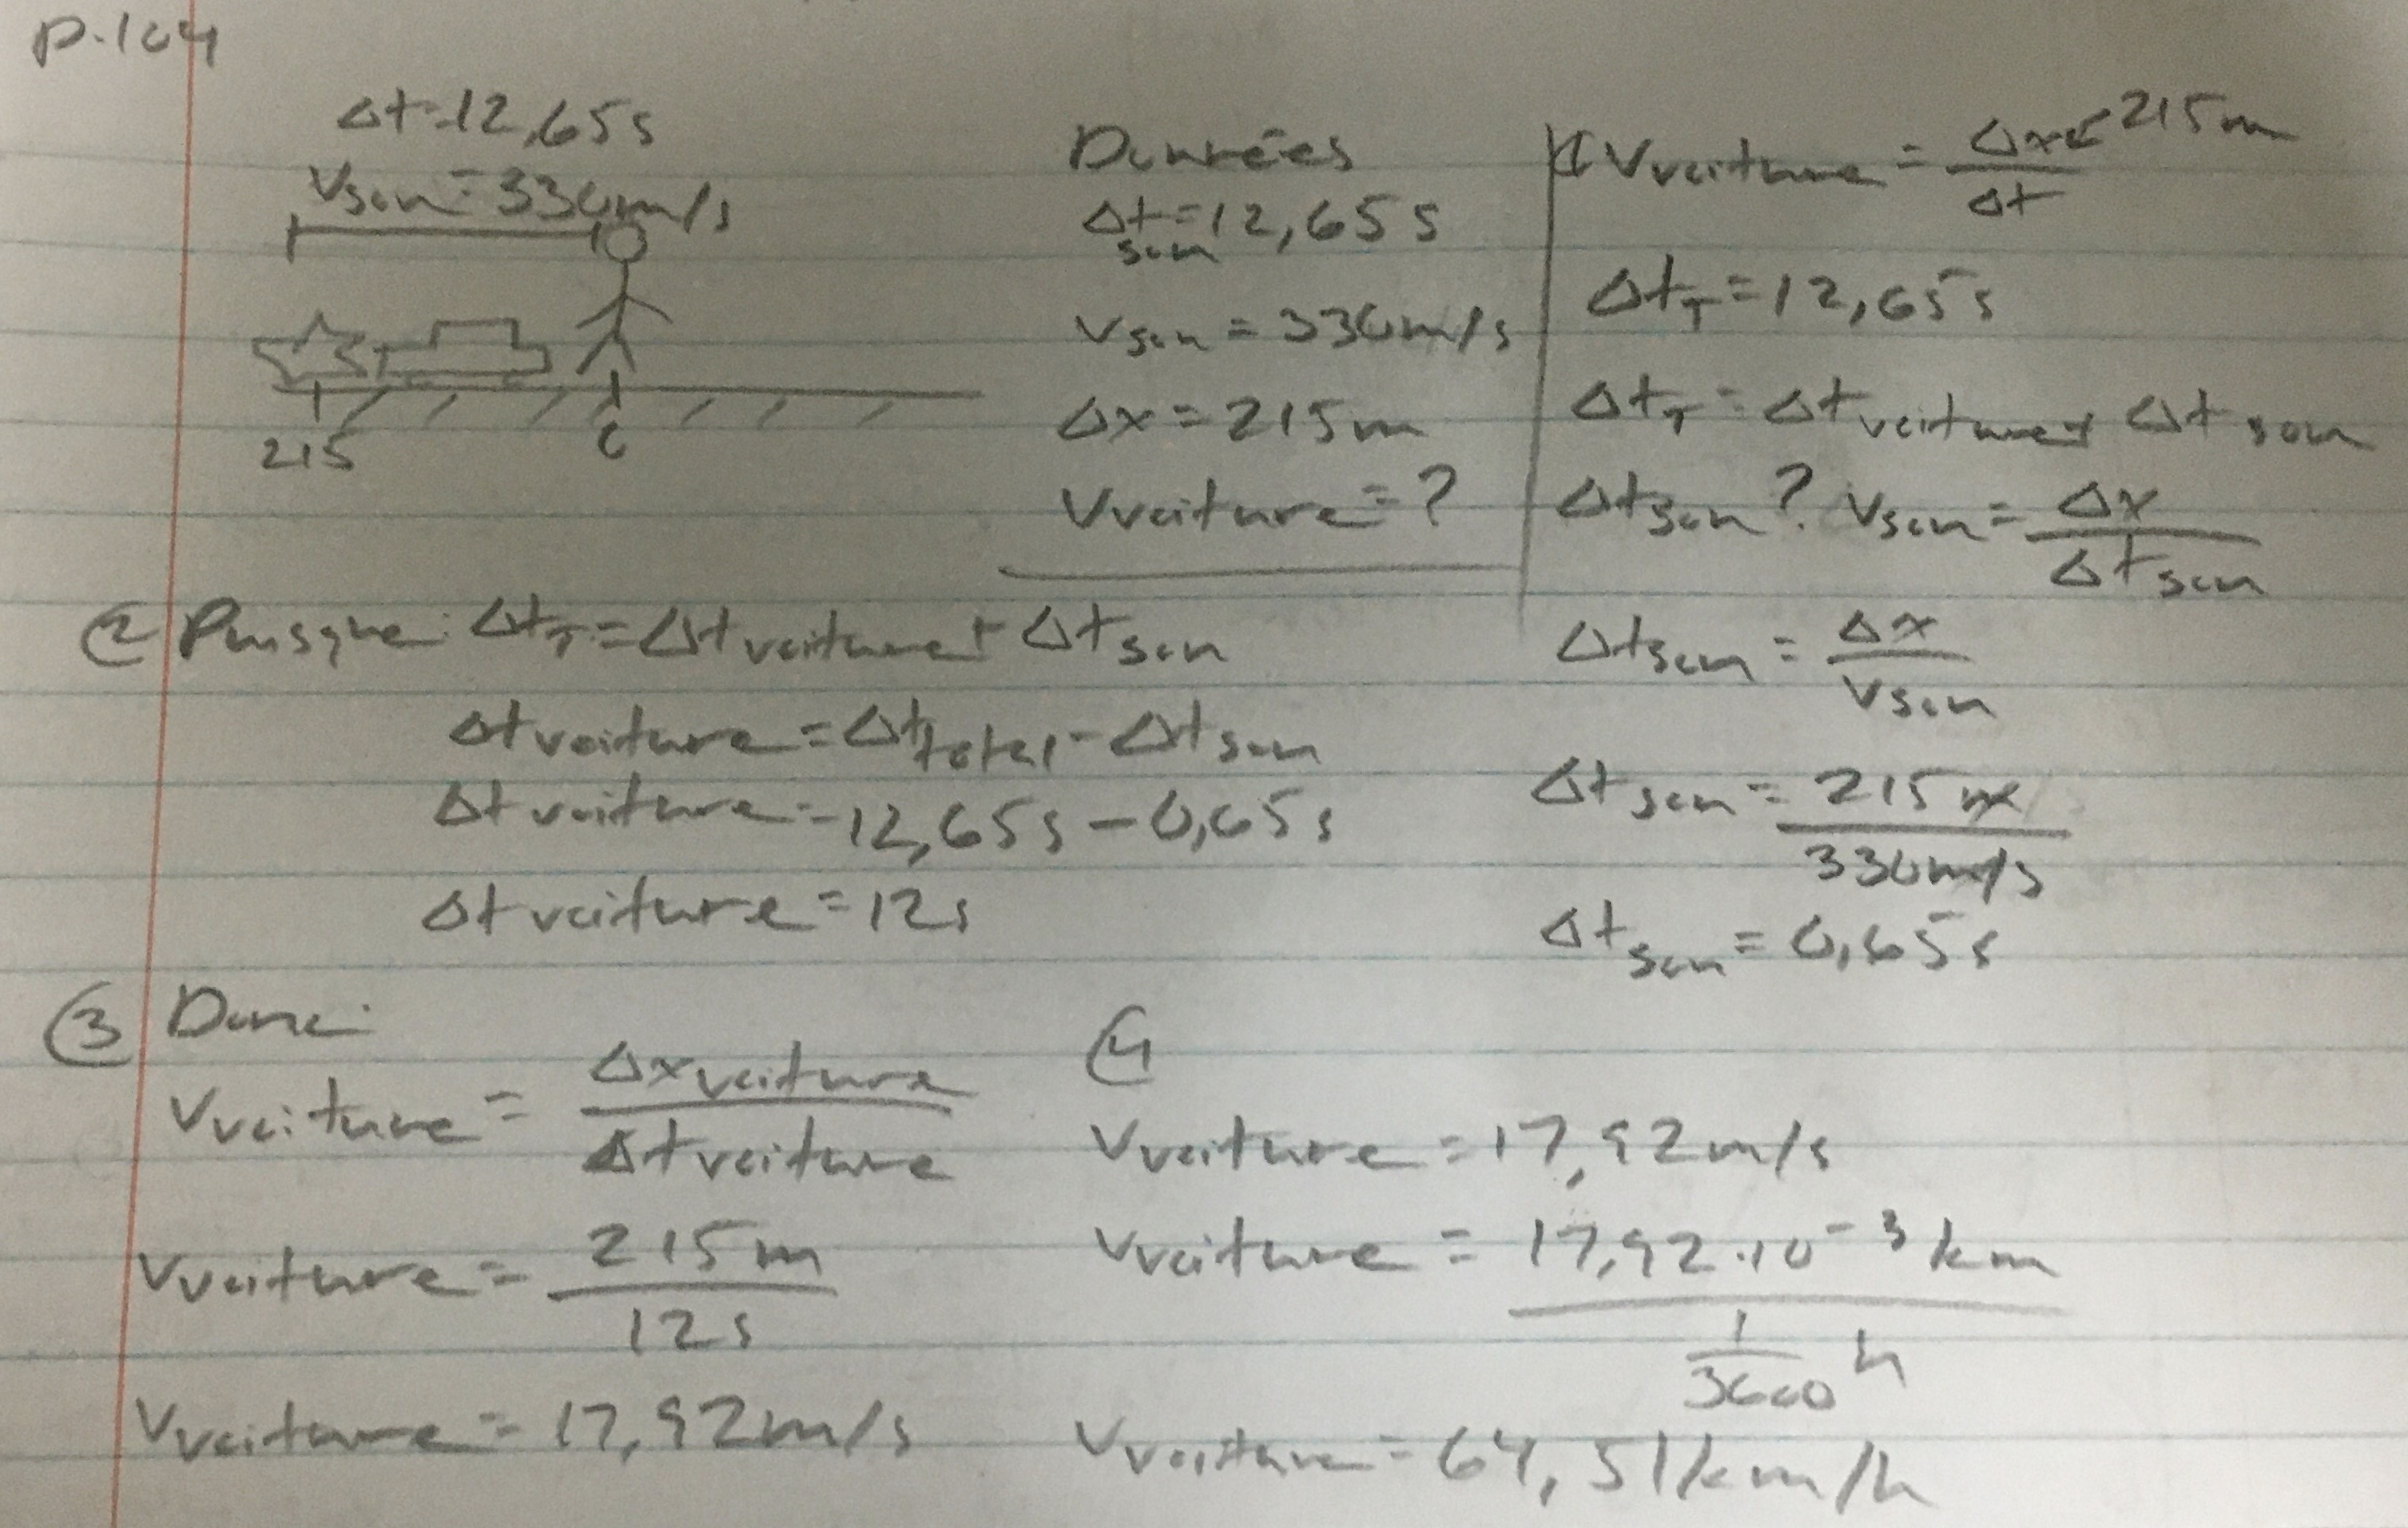 p.104
Δt=12,65s
Vson=330m/s
215 0
Données
Δt son=12,65s
Vson=330m/s
Δx=215m
Vvoiture=?
① Vvoiture = Δx ← 215m / Δt
Δt_T=12,65s
Δt_T=Δtvoiture+Δtson
Δtson? Vson=Δx/Δtson
Δtson=Δx/Vson
Δtson=215m/330m/s
Δtson=0,65s
② Puisque: Δt_T=Δtvoiture+Δtson
Δtvoiture=Δttotal-Δtson
Δtvoiture=12,65s-0,65s
Δtvoiture=12s
③ Donc:
Vvoiture=Δxvoiture/Δtvoiture
Vvoiture=215m/12s
Vvoiture=17,92m/s
④
Vvoiture=17,92m/s
Vvoiture=17,92·10⁻³km / 1/3600 h
Vvoiture=64,51km/h